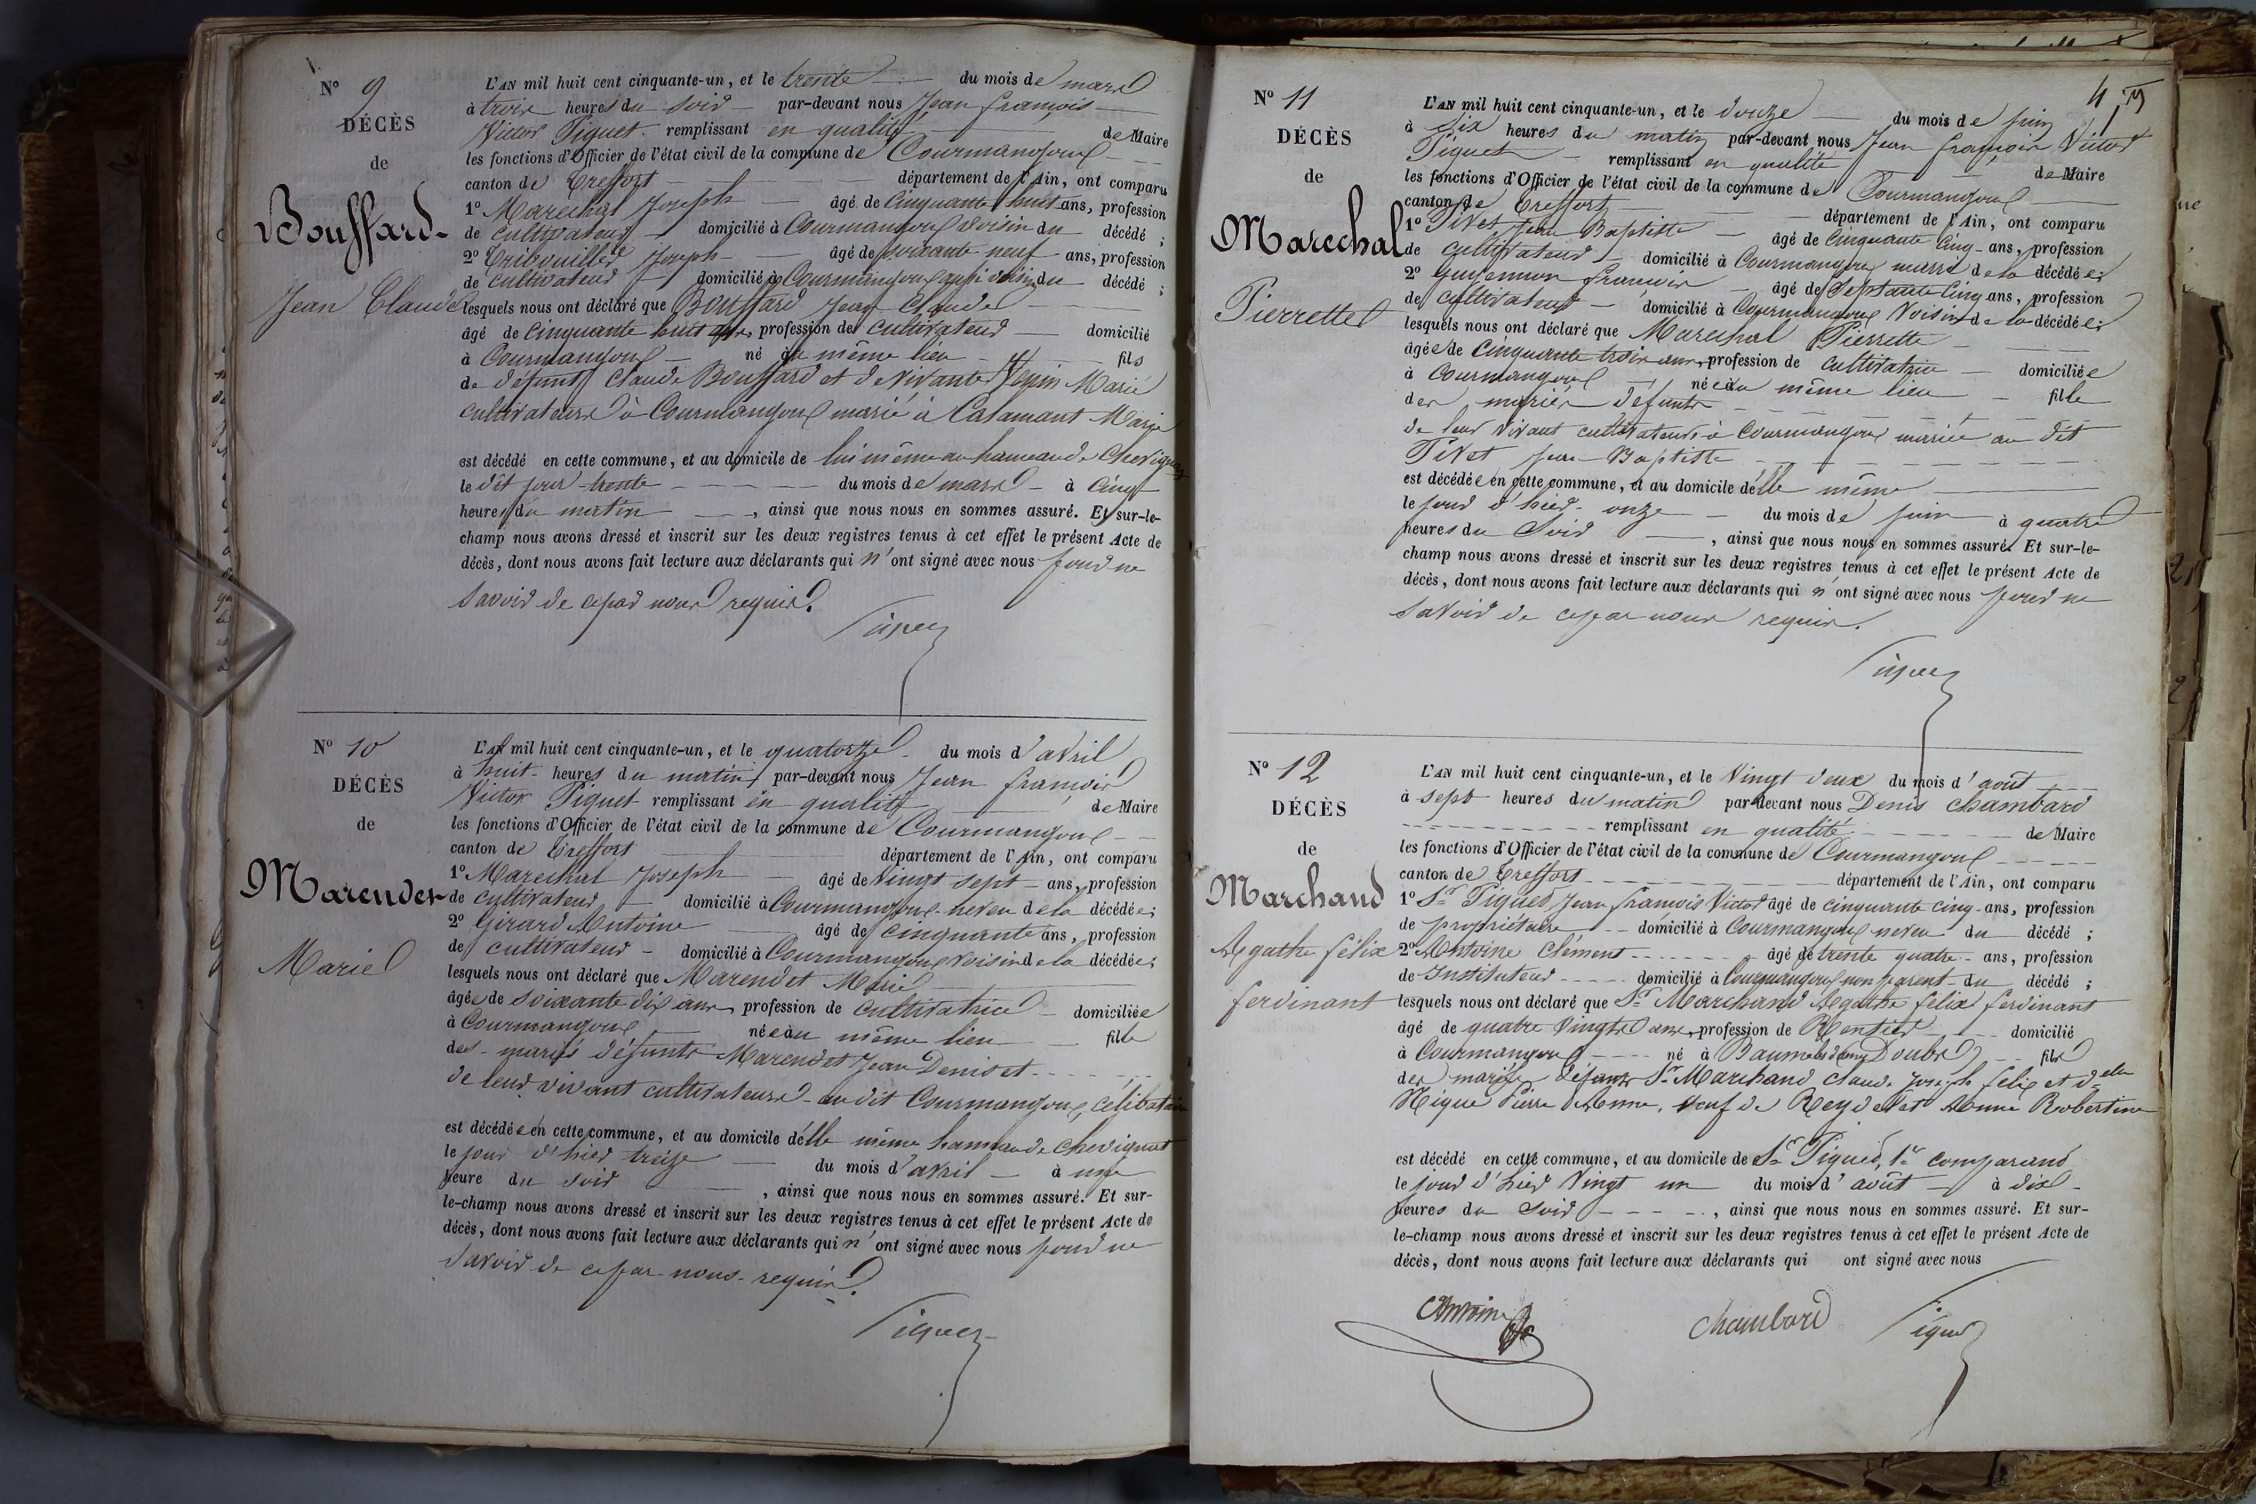 N° 9
DÉCÈS
de
Bouffard
Jean Claude
L'AN mil huit cent cinquante-un, et le trente du mois de mars
à trois heures du soir par-devant nous Jean françois
Victor Piquet remplissant en qualité de Maire
les fonctions d'Officier de l'état civil de la commune de Courmangoux
canton de Treffort département de l'Ain, ont comparu
1° Marechal Joseph âgé de Cinquante huit ans, profession
de cultivateur domicilié à Courmangoux voisin du décédé ;
2° Tribouillet Joseph âgé de soixante neuf ans, profession
de cultivateur domicilié à Courmangoux aussi voisin du décédé ;
lesquels nous ont déclaré que Bouffard Jean Claude
âgé de cinquante huit ans, profession de cultivateur domicilié
à Courmangoux né au même lieu fils
de défunt Claude Bouffard et de vivante Marie
cultivateurs à Courmangoux marié à Catamant Marie
est décédé en cette commune, et au domicile de lui même au hameau de Chevignat
le dit jour trente du mois de mars à Cinq
heures du matin, ainsi que nous nous en sommes assuré. Et sur-le-
champ nous avons dressé et inscrit sur les deux registres tenus à cet effet le présent Acte de
décès, dont nous avons fait lecture aux déclarants qui n'ont signé avec nous pour ne
savoir de ce par nous requis.
Piquet
N° 10
DÉCÈS
de
Marendet
Marie
L'AN mil huit cent cinquante-un, et le quatorze du mois d'avril
à huit heures du matin par-devant nous Jean françois
Victor Piquet remplissant en qualité de Maire
les fonctions d'Officier de l'état civil de la commune de Courmangoux
canton de Treffort département de l'Ain, ont comparu
1° Marechal Joseph âgé de vingt sept ans, profession
de cultivateur domicilié à Courmangoux neveu de la décédée ;
2° Girard Antoine âgé de cinquante ans, profession
de cultivateur domicilié à Courmangoux voisin de la décédée ;
lesquels nous ont déclaré que Marendet Marie
âgée de soixante dix ans, profession de cultivatrice domiciliée
à Courmangoux née au même lieu fille
des mariés défunts Marendet Jean Denis et
de leur vivant cultivateurs au dit Courmangoux, célibataire
est décédée en cette commune, et au domicile d'elle même hameau de chevignat
le jour d'hier treize du mois d'avril à une
heure du soir, ainsi que nous nous en sommes assuré. Et sur-
le-champ nous avons dressé et inscrit sur les deux registres tenus à cet effet le présent Acte de
décès, dont nous avons fait lecture aux déclarants qui n'ont signé avec nous pour ne
savoir de ce par nous requis.
Piquet
N° 11
DÉCÈS
de
Marechal
Pierrette
L'AN mil huit cent cinquante-un, et le douze du mois de juin
à six heures du matin par-devant nous Jean françois Victor
Piquet remplissant en qualité de Maire
les fonctions d'Officier de l'état civil de la commune de Courmangoux
canton de Treffort département de l'Ain, ont comparu
1° Pivet Jean Baptiste âgé de cinquante cinq ans, profession
de cultivateur domicilié à Courmangoux mari de la décédée ;
2° Guyennon françois âgé de septante cinq ans, profession
de cultivateur domicilié à Courmangoux voisin de la décédée ;
lesquels nous ont déclaré que Marechal Pierrette
âgée de cinquante trois ans, profession de cultivatrice domiciliée
à Courmangoux née au même lieu fille
des mariés défunts
de leur vivant cultivateurs à Courmangoux mariée au dit
Pivet Jean Baptiste
est décédée en cette commune, et au domicile d'elle même
le jour d'hier onze du mois de juin à quatre
heures du soir, ainsi que nous nous en sommes assuré. Et sur-le-
champ nous avons dressé et inscrit sur les deux registres tenus à cet effet le présent Acte de
décès, dont nous avons fait lecture aux déclarants qui n'ont signé avec nous pour ne
savoir de ce par nous requis.
Piquet
N° 12
DÉCÈS
de
Marchand
Agathe félix
ferdinant
L'AN mil huit cent cinquante-un, et le Vingt deux du mois d'août
à sept heures du matin par-devant nous Denis Chambard
remplissant en qualité de Maire
les fonctions d'Officier de l'état civil de la commune de Courmangoux
canton de Treffort département de l'Ain, ont comparu
1° Sr Piquet Jean françois Victor âgé de cinquante cinq ans, profession
de propriétaire domicilié à Courmangoux neveu du décédé ;
2° Antoine Clément âgé de trente quatre ans, profession
de Instituteur domicilié à Courmangoux non parent du décédé ;
lesquels nous ont déclaré que Sr Marchand Agathe félix ferdinant
âgé de quatre vingts ans, profession de Rentier domicilié
à Courmangoux né à Baumelesdames Doubs fils
des mariés défunts Sr Marchand Claude Joseph félix et delle
Nique Pierre Anne, veuf de Reydellet Anne Robertine
est décédé en cette commune, et au domicile de Sr Piquet, 1er comparant
le jour d'hier Vingt un du mois d'août à dix
heures du soir, ainsi que nous nous en sommes assuré. Et sur-
le-champ nous avons dressé et inscrit sur les deux registres tenus à cet effet le présent Acte de
décès, dont nous avons fait lecture aux déclarants qui ont signé avec nous
Antoine Chambard Piquet